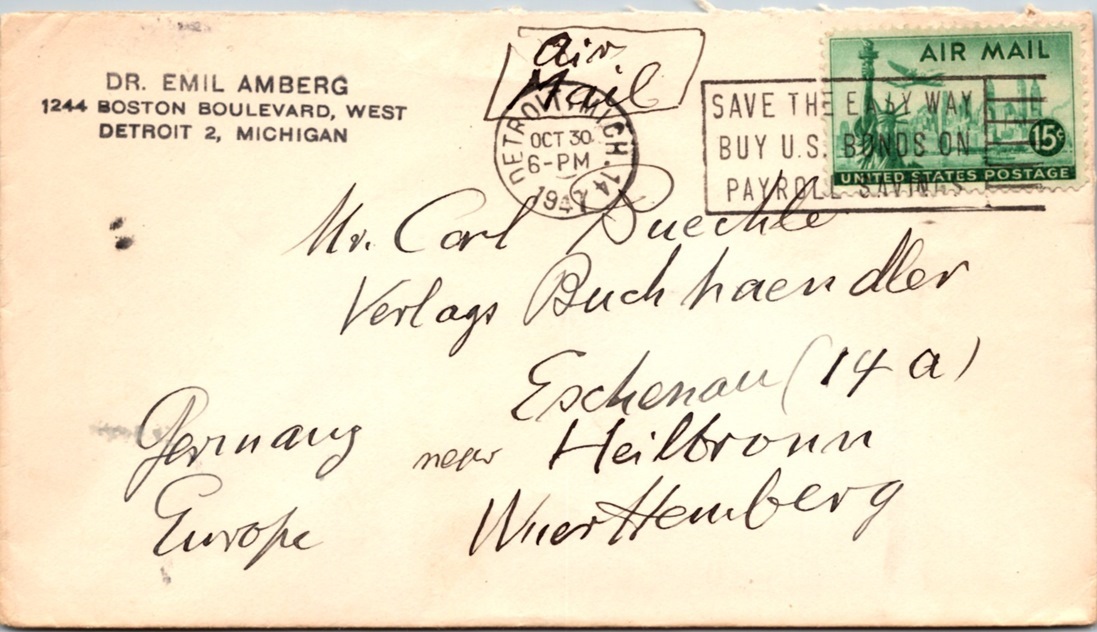 DR. EMIL AMBERG
1244 BOSTON BOULEVARD, WEST
DETROIT 2, MICHIGAN
Air
Mail
DETROIT MICH. 14
OCT 30
6-PM
1947
SAVE THE EASY WAY
BUY U.S. BONDS ON
PAYROLL SAVINGS
AIR MAIL
15¢
UNITED STATES POSTAGE
Mr. Carl Buechle
Verlags Buchhaendler
Eschenau (14 a)
near Heilbronn
Wuerttemberg
Germany
Europe